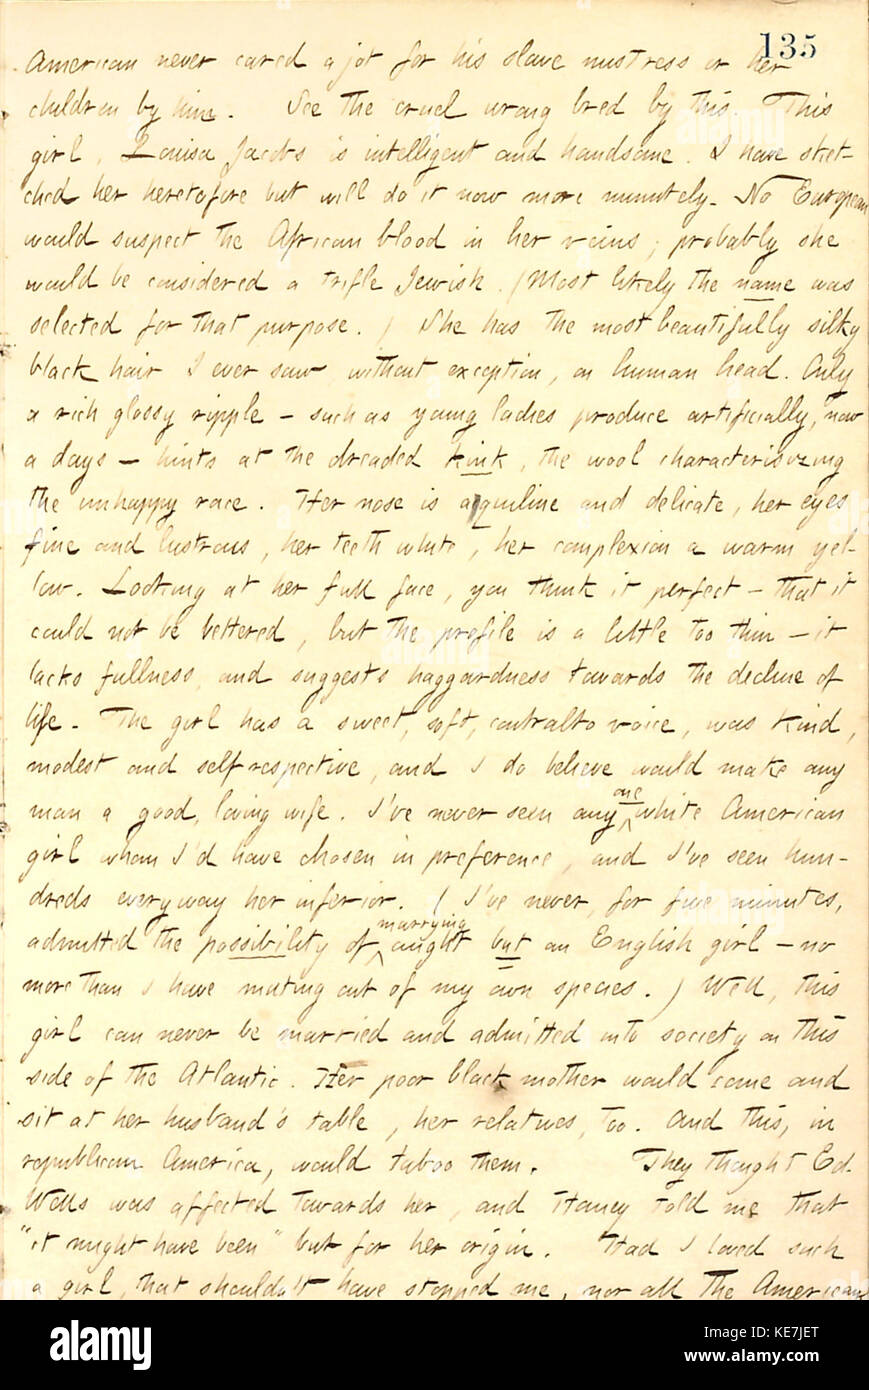 135
American never cared a jot for his slave mistress or her
children by him. See the cruel wrong bred by this. This
girl, Louisa Jacobs is intelligent and handsome. I have sket-
ched her heretofore but will do it now more minutely. No European
would suspect the African blood in her veins; probably she
would be considered a trifle Jewish. (Most likely the name was
selected for that purpose.) She has the most beautifully silky
black hair I ever saw without exception, on human head. Only
a rich glossy ripple — such as young ladies produce artificially, now
a days — hints at the dreaded kink, the wool characterising
the unhappy race. Her nose is aquiline and delicate, her eyes
fine and lustrous, her teeth white, her complexion a warm yel-
low. Looking at her full face, you think it perfect — that it
could not be bettered, but the profile is a little too thin — it
lacks fullness, and suggests haggardness towards the decline of
life. The girl has a sweet, soft, contralto voice, was kind,
modest and self respective, and I do believe would make any
man a good, loving wife. I've never seen any one white American
girl whom I'd have chosen in preference, and I've seen hun-
dreds everyway her inferior. (I've never, for five minutes,
admitted the possibility of marrying aught but an English girl — no
more than I have mating out of my own species.) Well, this
girl can never be married and admitted into society on this
side of the Atlantic. Her poor black mother would come and
sit at her husband's table, her relatives, too. And this, in
republican America, would taboo them. They thought Ed.
Wells was affected towards her, and Haney told me that
"it might have been" but for her origin. Had I loved such
a girl, that shouldn't have stopped me, nor all the American
alamy
Image ID: KE7JET
www.alamy.com